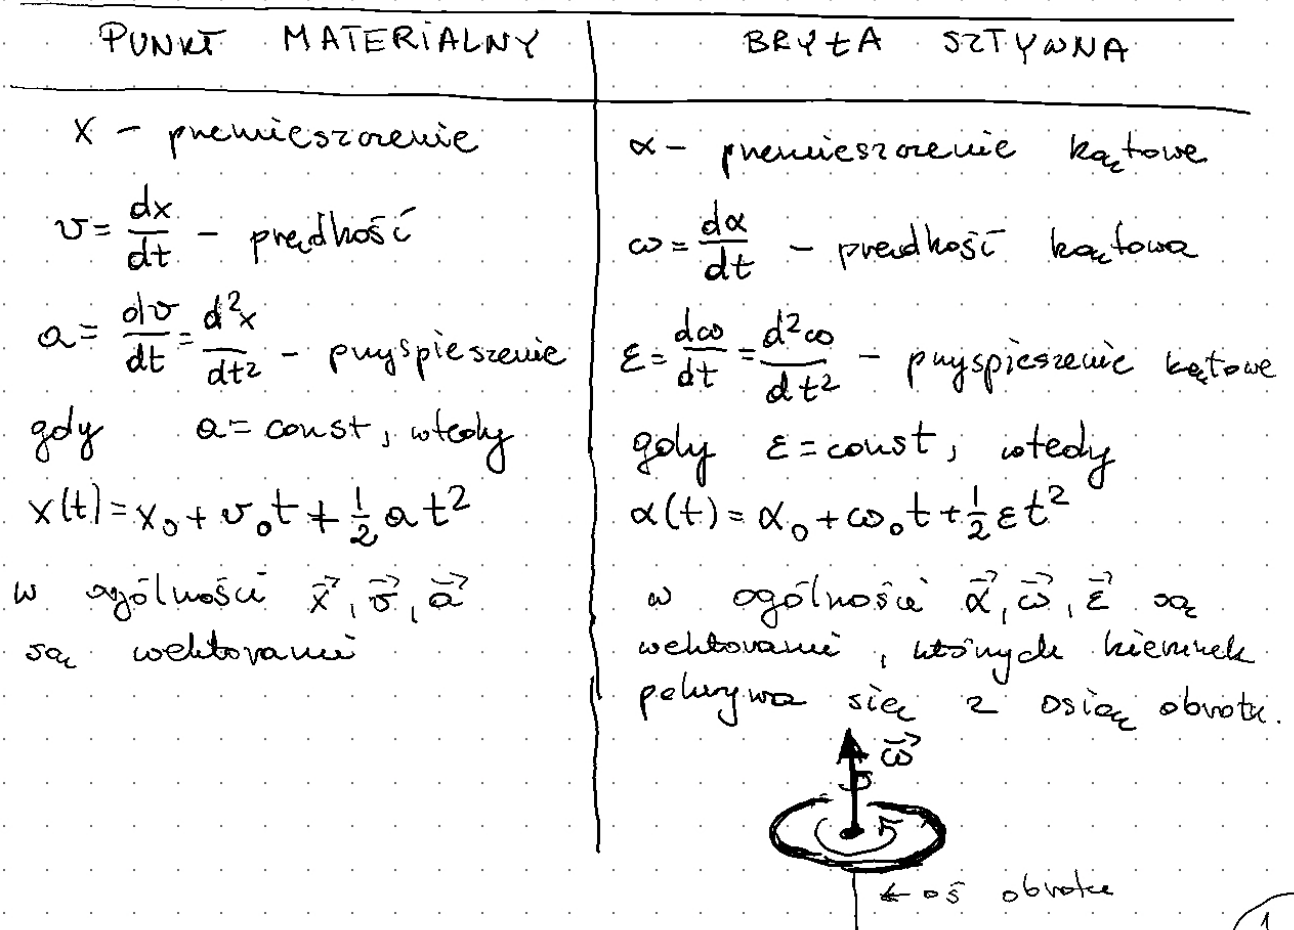 PUNKT MATERIALNY
x - przemieszczenie
v = dx/dt - prędkość
a = dv/dt = d²x/dt² - przyspieszenie
gdy a = const, wtedy
x(t) = x₀ + v₀t + 1/2 at²
w ogólności x⃗, v⃗, a⃗
są wektorami
BRYŁA SZTYWNA
α - przemieszczenie kątowe
ω = dα/dt - prędkość kątowa
ε = dω/dt = d²ω/dt² - przyspieszenie kątowe
gdy ε = const, wtedy
α(t) = α₀ + ω₀t + 1/2 εt²
w ogólności α⃗, ω⃗, ε⃗ są
wektorami, których kierunek
pokrywa się z osią obrotu.
ω⃗
← oś obrotu
1